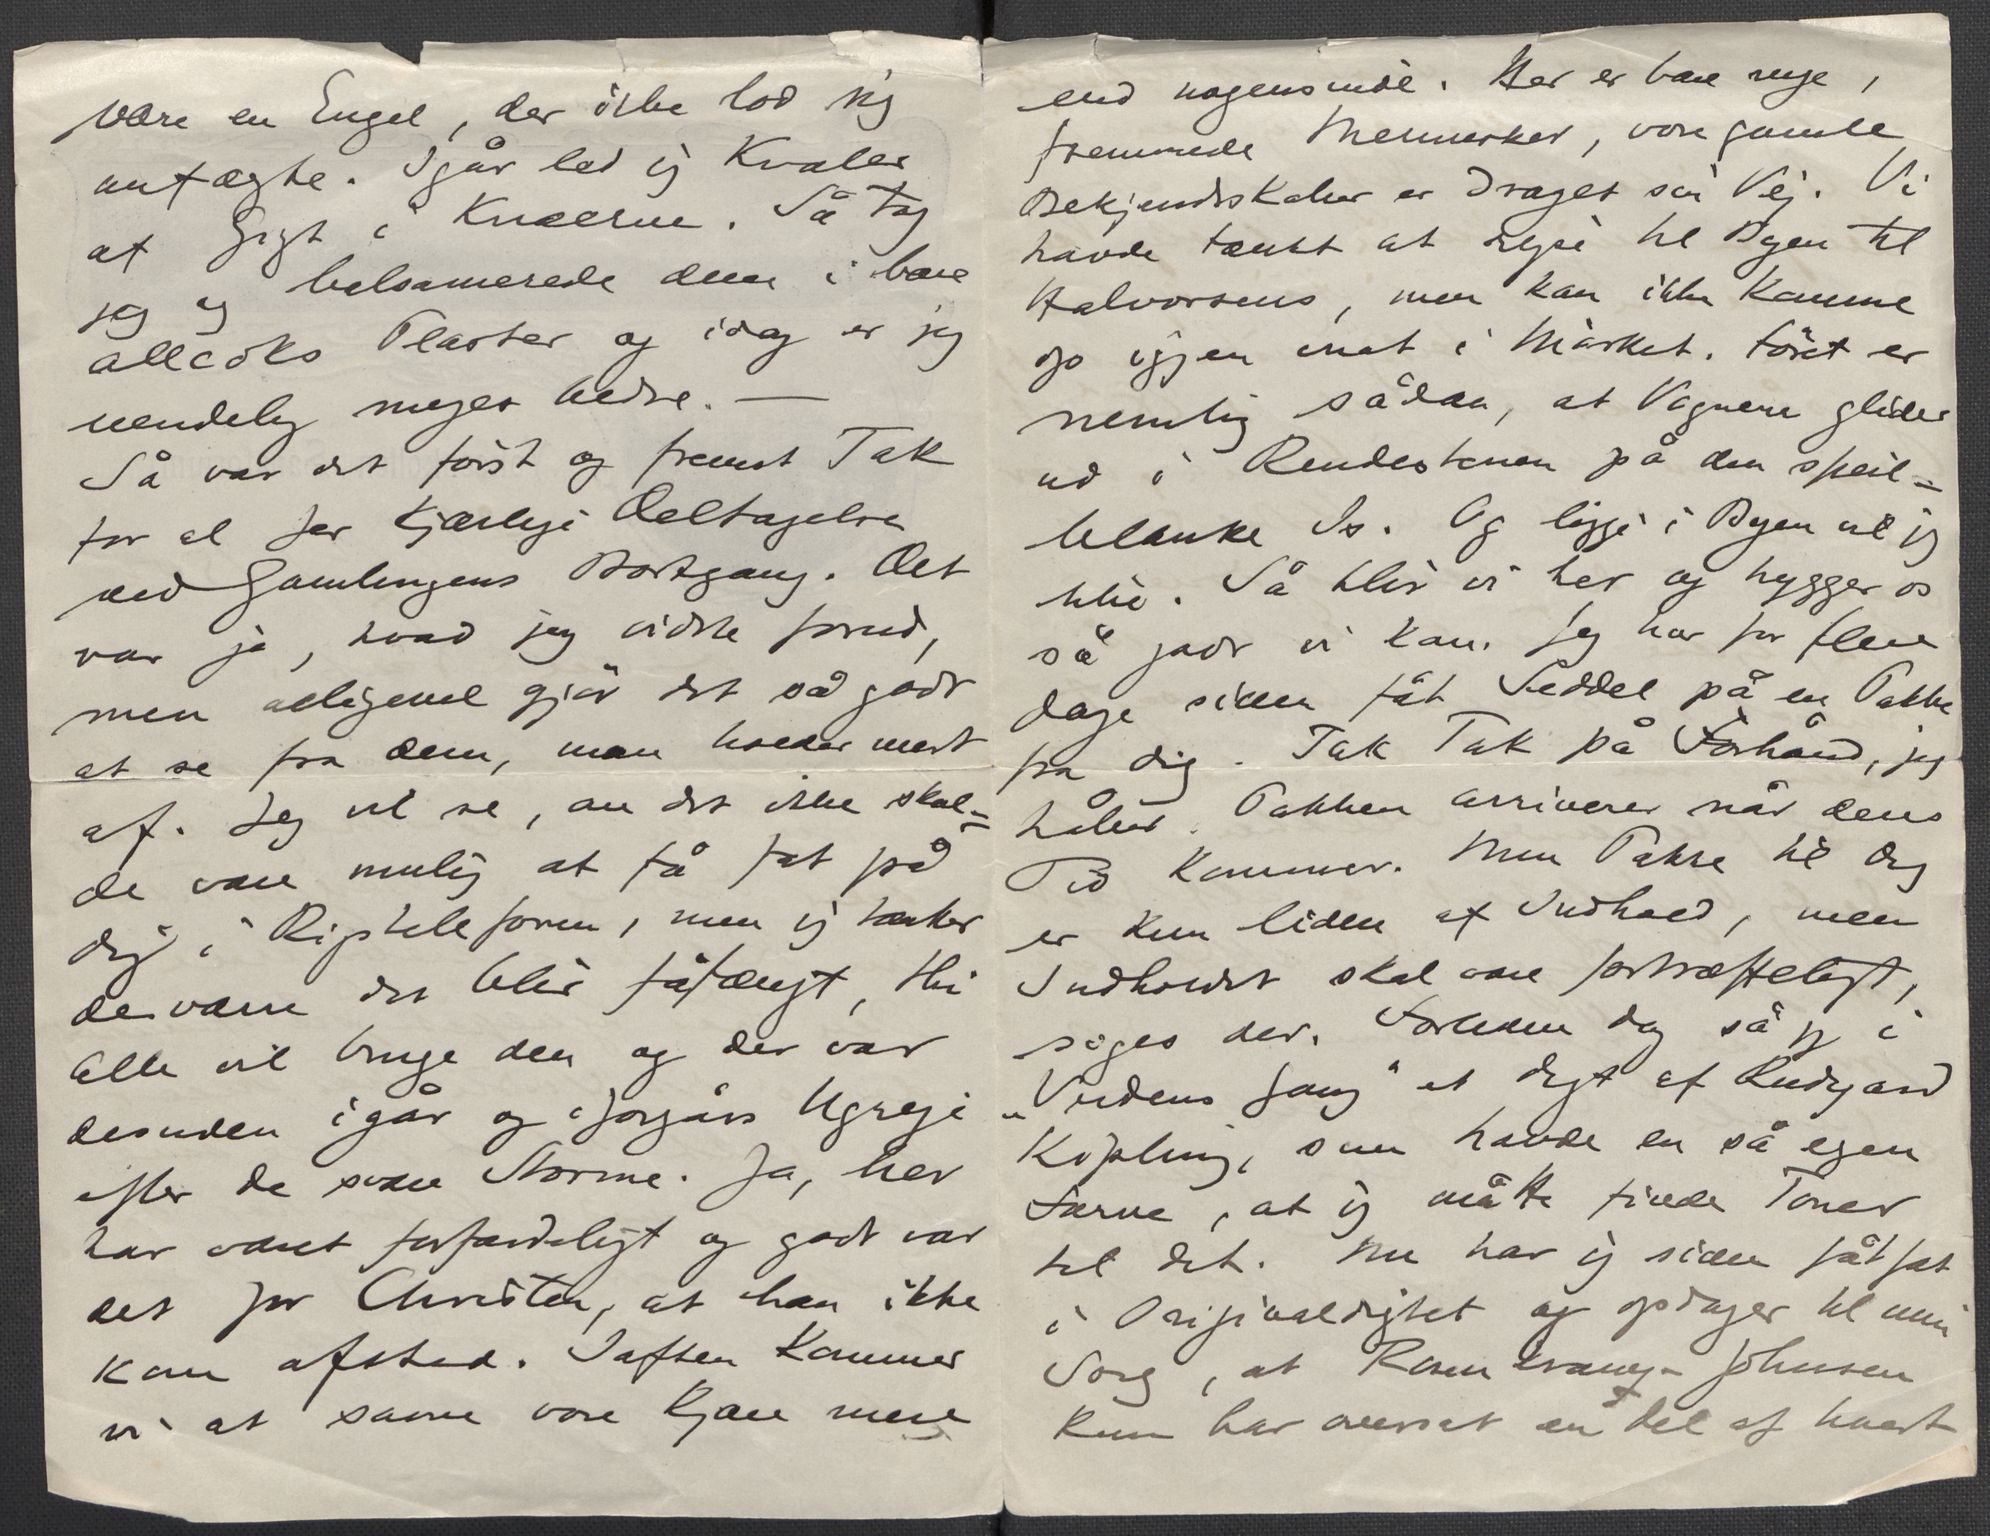 være en Engel, der ikke lod sig
anfægte. Igår led jeg Kvaler
af Gigt i Knæerne. Så tog
jeg og balsamerede dem i bare
allcoks Plaster og idag er jeg
uendelig meget bedre. —
Så var det först og fremst Tak
for al Jer kjærlige Deltagelse
ved Gamlingens Bortgang. Det
var jo, hvad jeg vidste forud,
men alligevel gjör det så godt
at se fra dem, man holder mest
af. Jeg vil se, om det ikke skul=
de være mulig at få fat på
dig i Rigstelefonen, men jeg tænker
desværre det blir fåfængt, thi
alle vil bruge den og der var
desuden igår og iforgårs Ugreje
efter de svære Storme. Ja, her
har været forfærdeligt og godt var
det for Christen, at han ikke
kom afsted. Iaften kommer
vi at savne vore Kjære mere
end nogensinde. Her er bare nye,
fremmede Mennesker, vore gamle
Bekjendtskaber er draget sin Vej. Vi
havde tænkt at rejse til Byen til
Halvorsens, men kan ikke komme
op igjen inat i Mörket. Föret er
nemlig sådan, at Vognene glider
ud i Rendestenen på den speil=
blanke Is. Og ligge i Byen vil jeg
ikke. Så blir vi her og hygger os
så godt vi kan. Jeg har for flere
dage siden fåt Seddel på en Pakke
fra dig. Tak Tak på Forhånd, jeg
håber Pakken arriverer når dens
Tid kommer. Min Pakke til dig
er kun liden af Indhold, men
Indholdet skal være fortræffeligt,
siges der. Forleden dag så jeg i
„Verdens Gang" et digt af Rudyard
Kipling, som havde en så egen
Farve, at jeg måtte finde Toner
til det. Nu har jeg siden fåt fat
i Originaldigtet og opdager til min
Sorg, at Rosenkrantz-Johnsen
kun har oversat en del af hvert